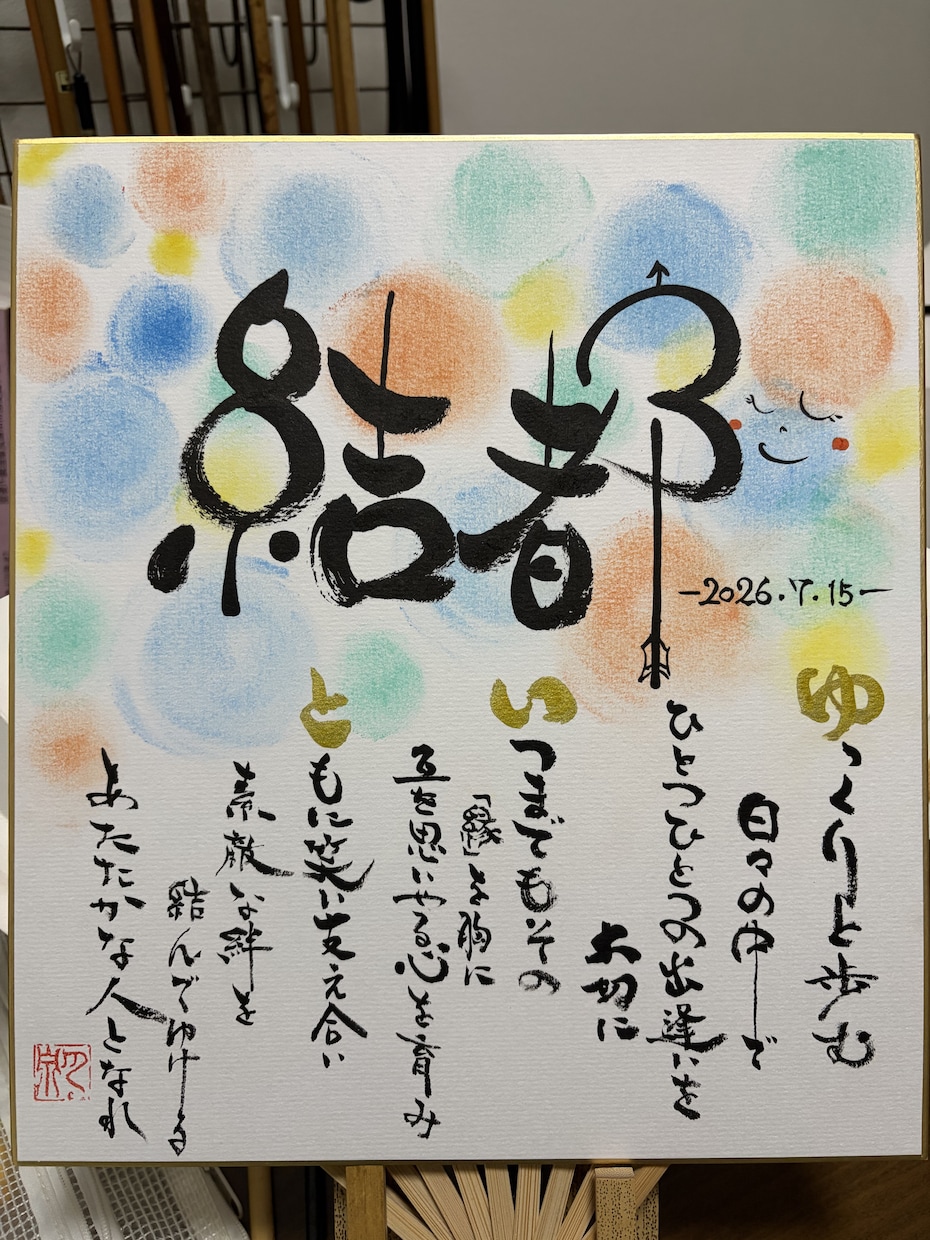 結都
-2026.7.15-
ゆっくりと歩む
日々の中で
ひとつひとつの出逢いを
大切に
いつまでもその
「縁」を胸に
互を思いやる心を育み
ともに笑い支え合い
素敵な絆を
結んでゆける
あたたかな人となれ